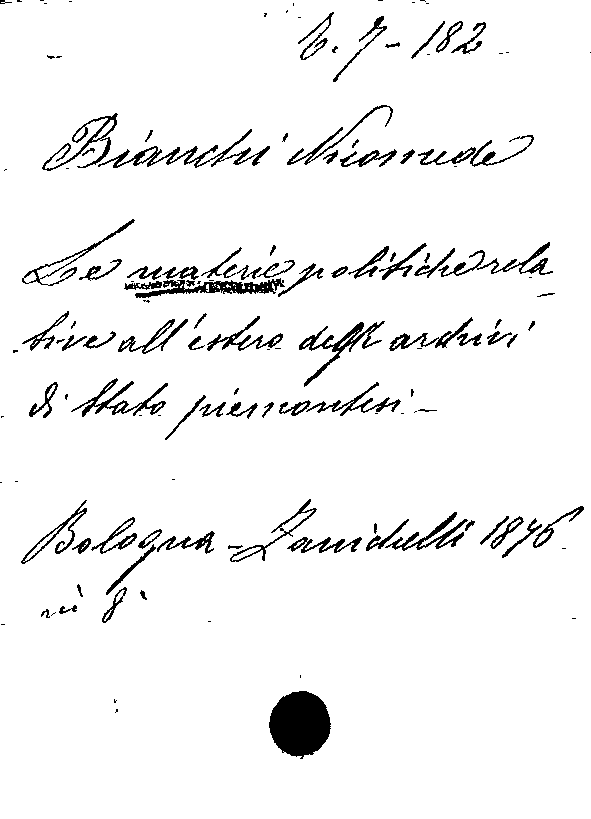 Z. 7 - 182
Bianchi Nicomede
Le materie politiche rela
tive all'estero degli archivi
di Stato piemontesi -
Bologna - Zanichelli 1876
in 8°